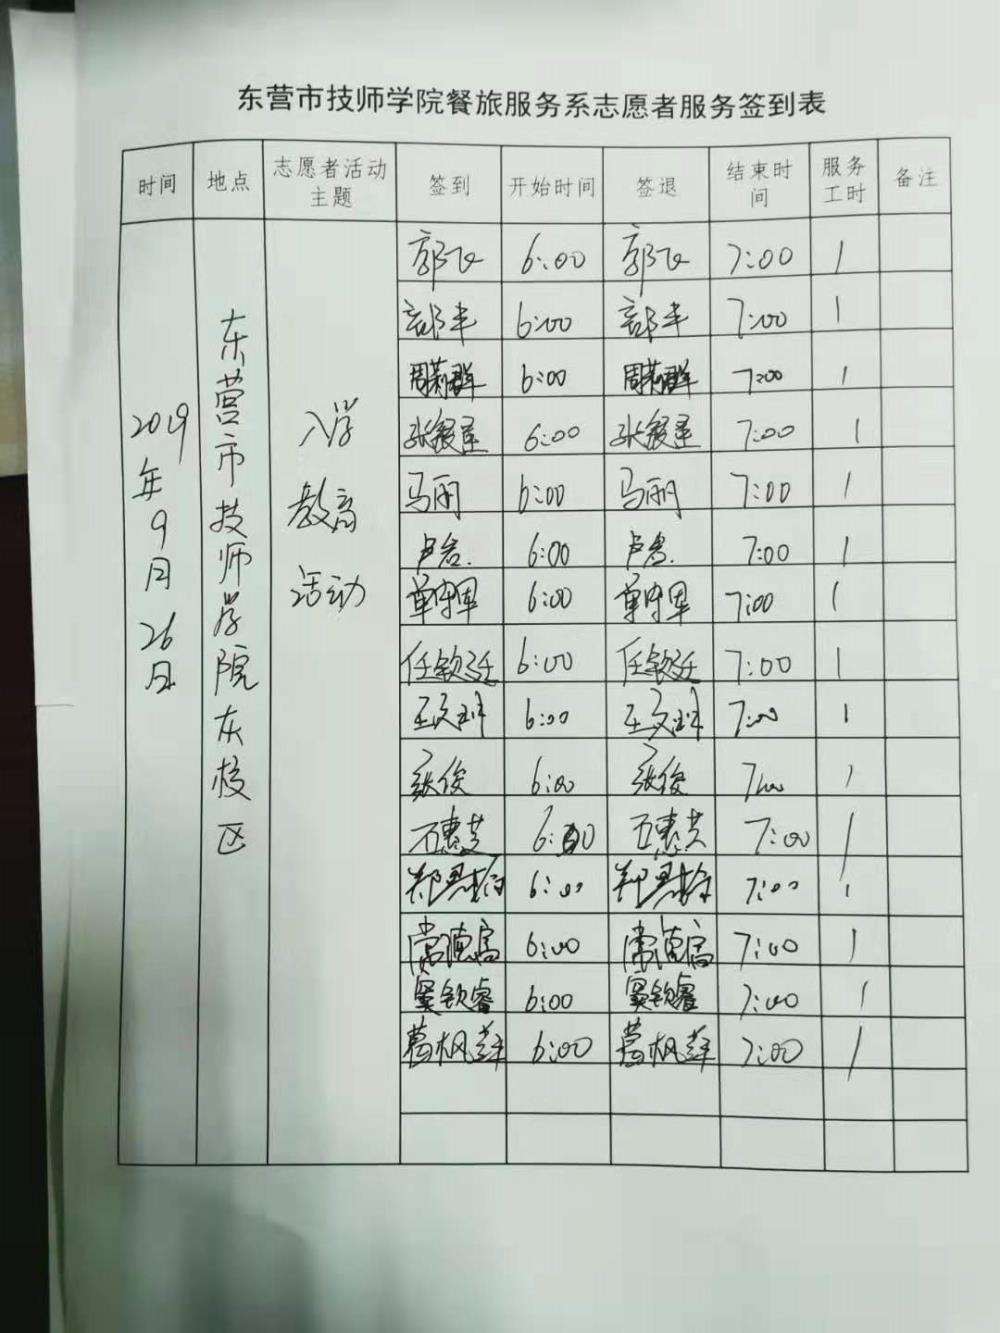 东营市技师学院餐旅服务系志愿者服务签到表
时间 地点 志愿者活动主题 签到 开始时间 签退 结束时间 服务工时 备注
2019年9月26日
东营市技师学院东校区
入学教育活动
郭飞 6:00 郭飞 7:00 1
6:00 7:00 1
周莉群 6:00 周莉群 7:00 1
6:00 7:00 1
马丽 6:00 马丽 7:00 1
卢岩 6:00 卢岩 7:00 1
单守军 6:00 单守军 7:00 1
任钦廷 6:00 任钦廷 7:00 1
王文 6:00 王文 7:00 1
张俊 6:00 张俊 7:00 1
石惠芝 6:00 石惠芝 7:00 1
郑 6:00 郑 7:00 1
常德富 6:00 常德富 7:00 1
窦钦睿 6:00 窦钦睿 7:00 1
葛枫 6:00 葛枫 7:00 1